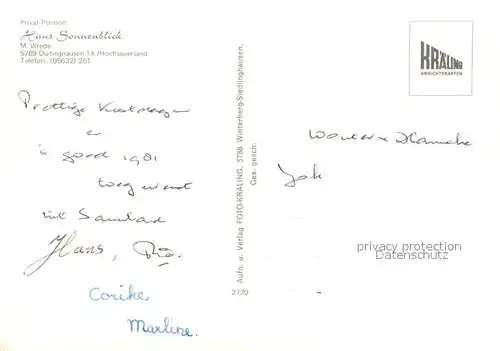 Privat-Pension
Haus Sonnenblick
M. Wrede
5789 Düdinghausen 14 /Hochsauerland
Telefon: (05632) 251
Prettige Kerstdagen
en
'n goed 1981
toegewenst
uit Sauerland
Hans, Ria.
Corike
Marline.
Aufn. u. Verlag FOTO-KRÄLING, 5788 Winterberg-Siedlinghausen,
Ges. gesch.
2720
KRÄLING
ANSICHTSKARTEN
Wouter x Hanneke
privacy protection
Datenschutz